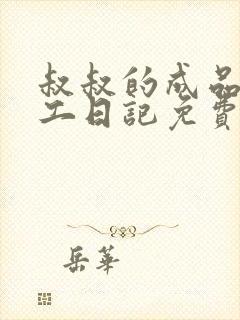 叔叔的成品
工日記免費
岳華